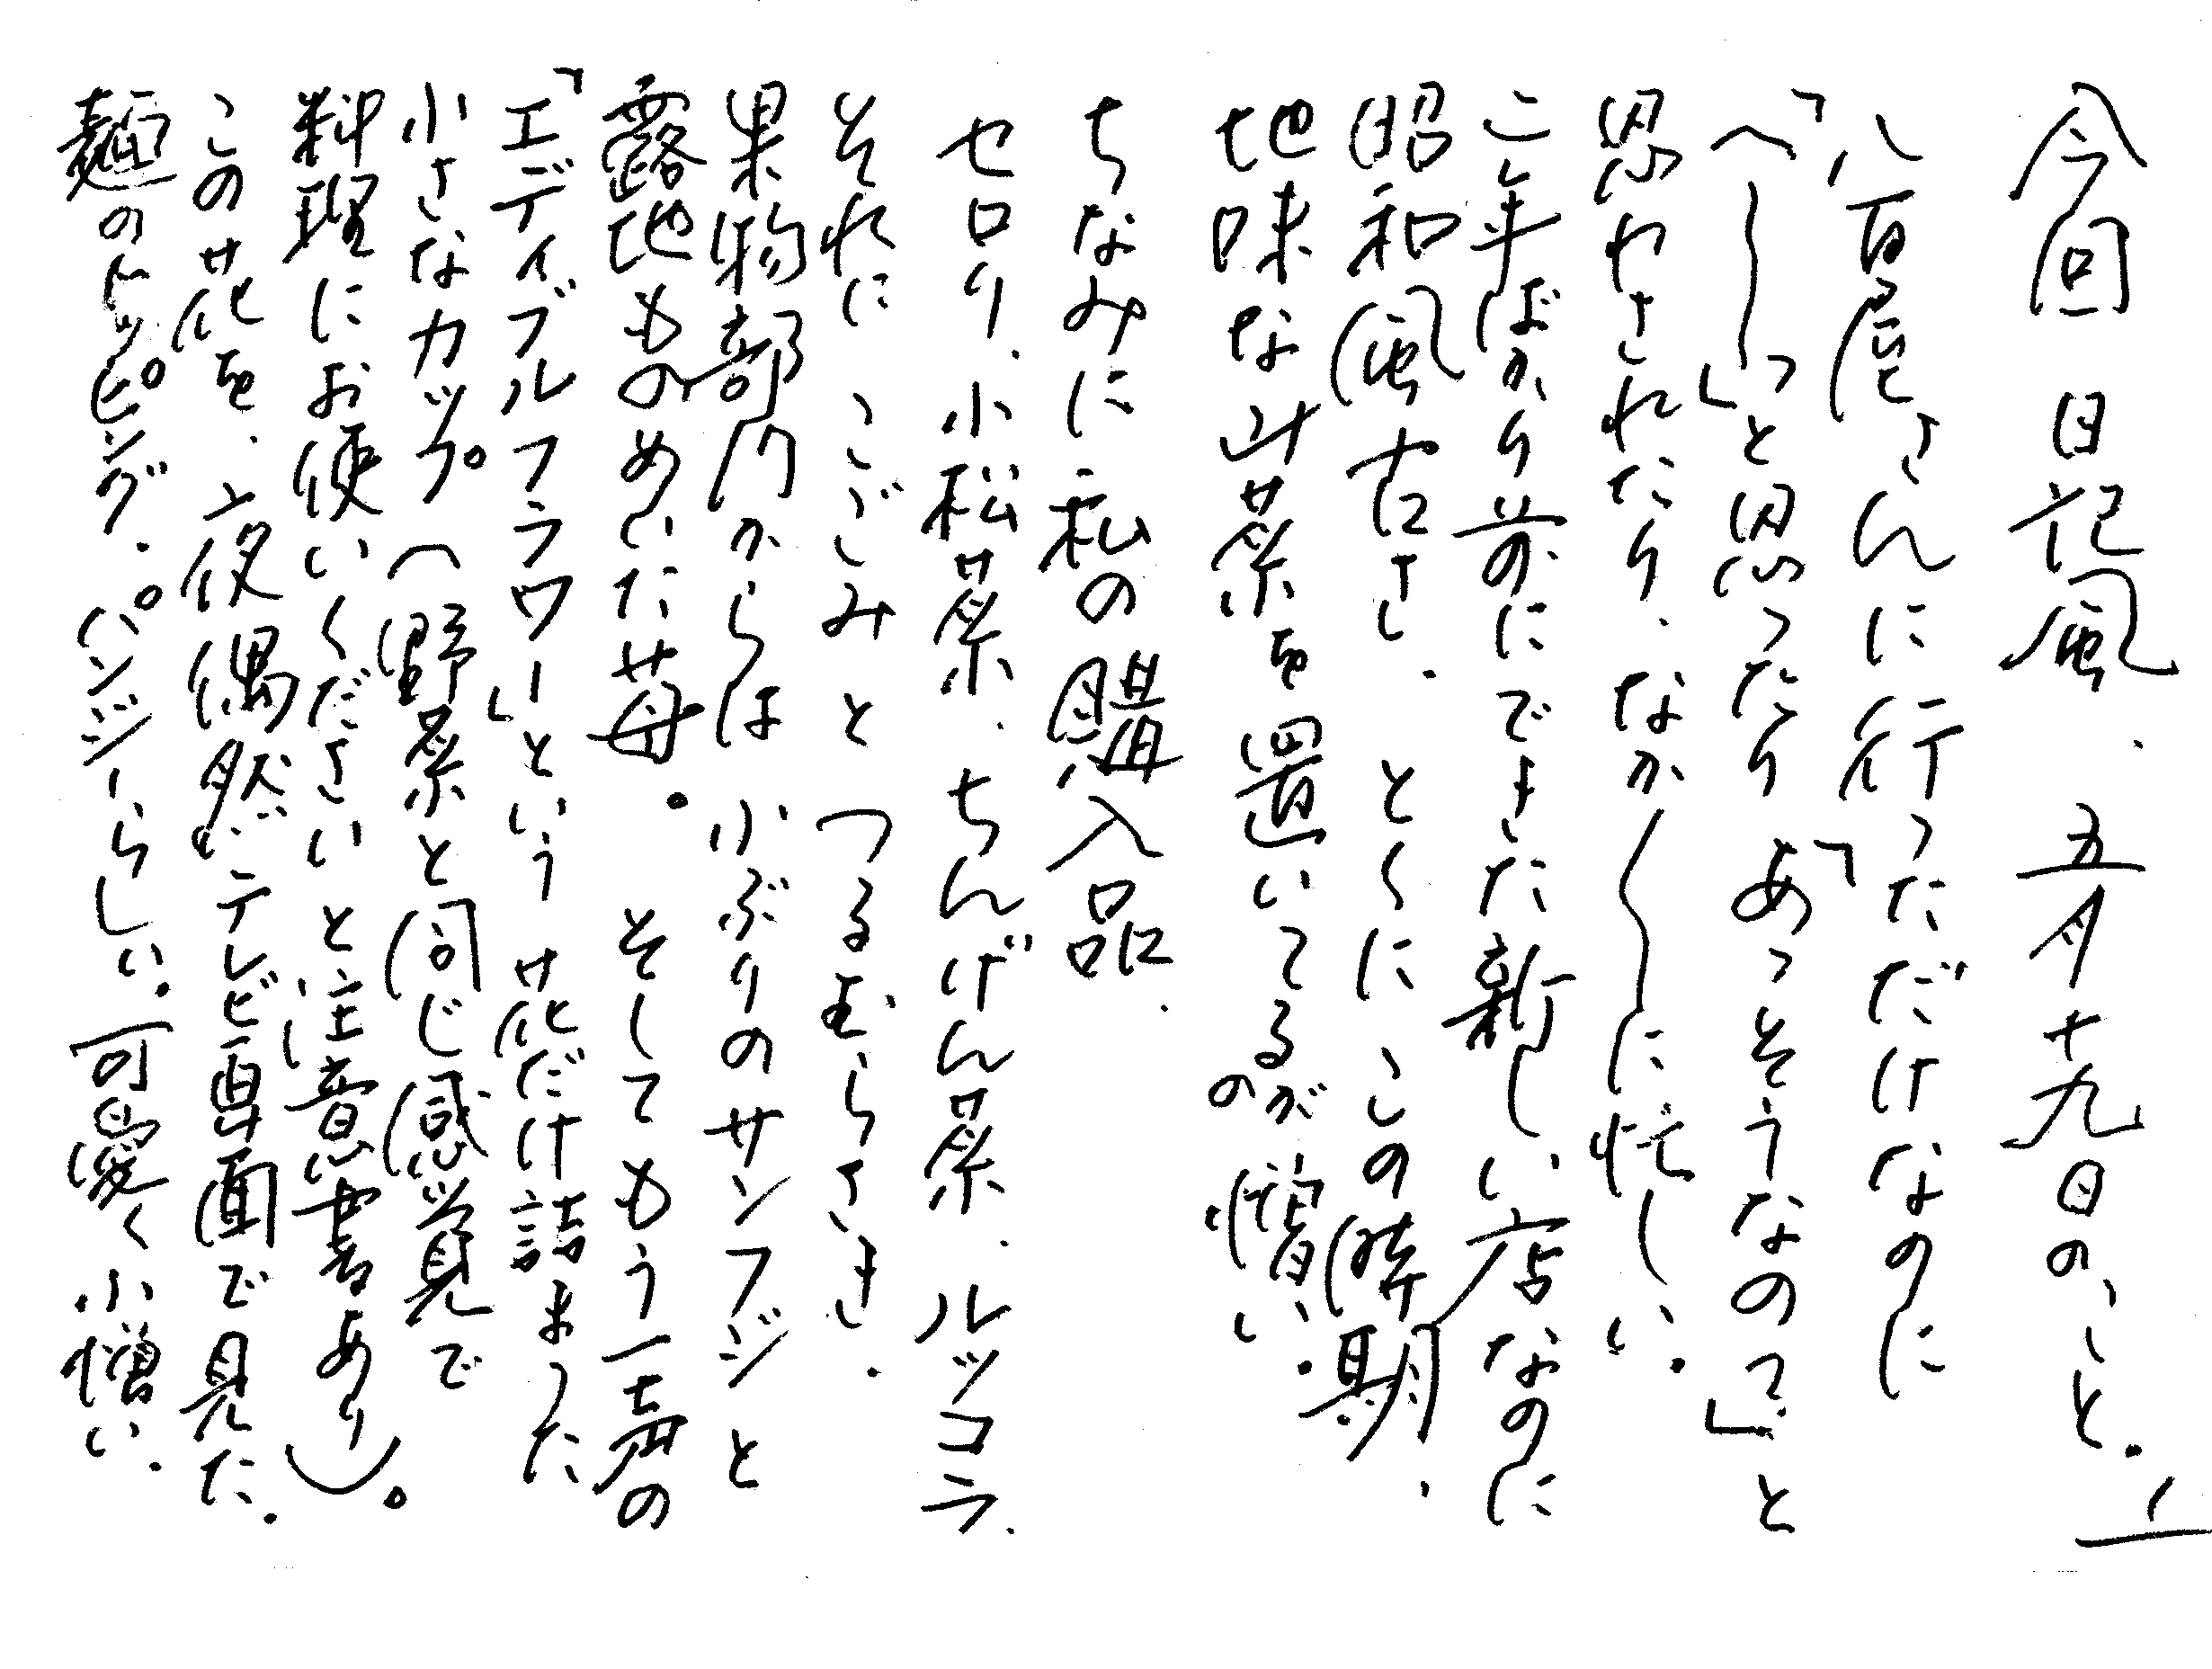 今回 日記風、五月十九日の、こと。
1
八百屋さんに行っただけなのに
「へ〜〜っ」と思ったり「あっそうなの?」と
思わされたり、なか〱に忙しい。
二年ばかり前にできた新しい店なのに
昭和風古さ、とくに この時期、
地味な山菜を置いてるのが憎い。
ちなみに私の購入品、
セロリ、小松菜、ちんげん菜、ルッコラ、
それに こごみ と つるむらさき、
果物部門からは 小ぶりのサンフジと
露地ものめいた苺。 そしてもう一声の
「エディブルフラワー」という 花だけ詰まった
小さなカップ(野菜と同じ感覚で
料理にお使いくださいと注意書あり)。
この花を、夜偶然テレビ画面で見た。
麺のトッピング、パンジーらしい。可愛く小憎い、